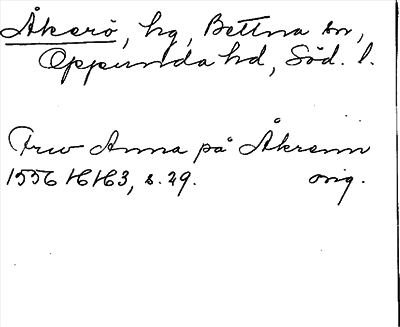 Åkerö, hg, Bettna sn,
Oppunda hd, Söd. l.
Fru Anna på Åkrenn
1556 16163, s. 29. orig.